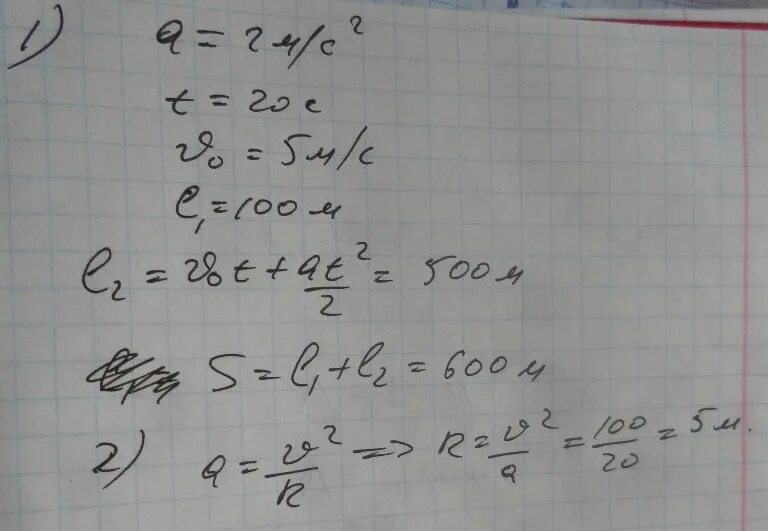 1) a = 2 м/с²
t = 20 с
v₀ = 5 м/с
l₁ = 100 м
l₂ = v₀t + at²/2 = 500 м
S = l₁ + l₂ = 600 м
2) a = v²/R => R = v²/a = 100/20 = 5 м.